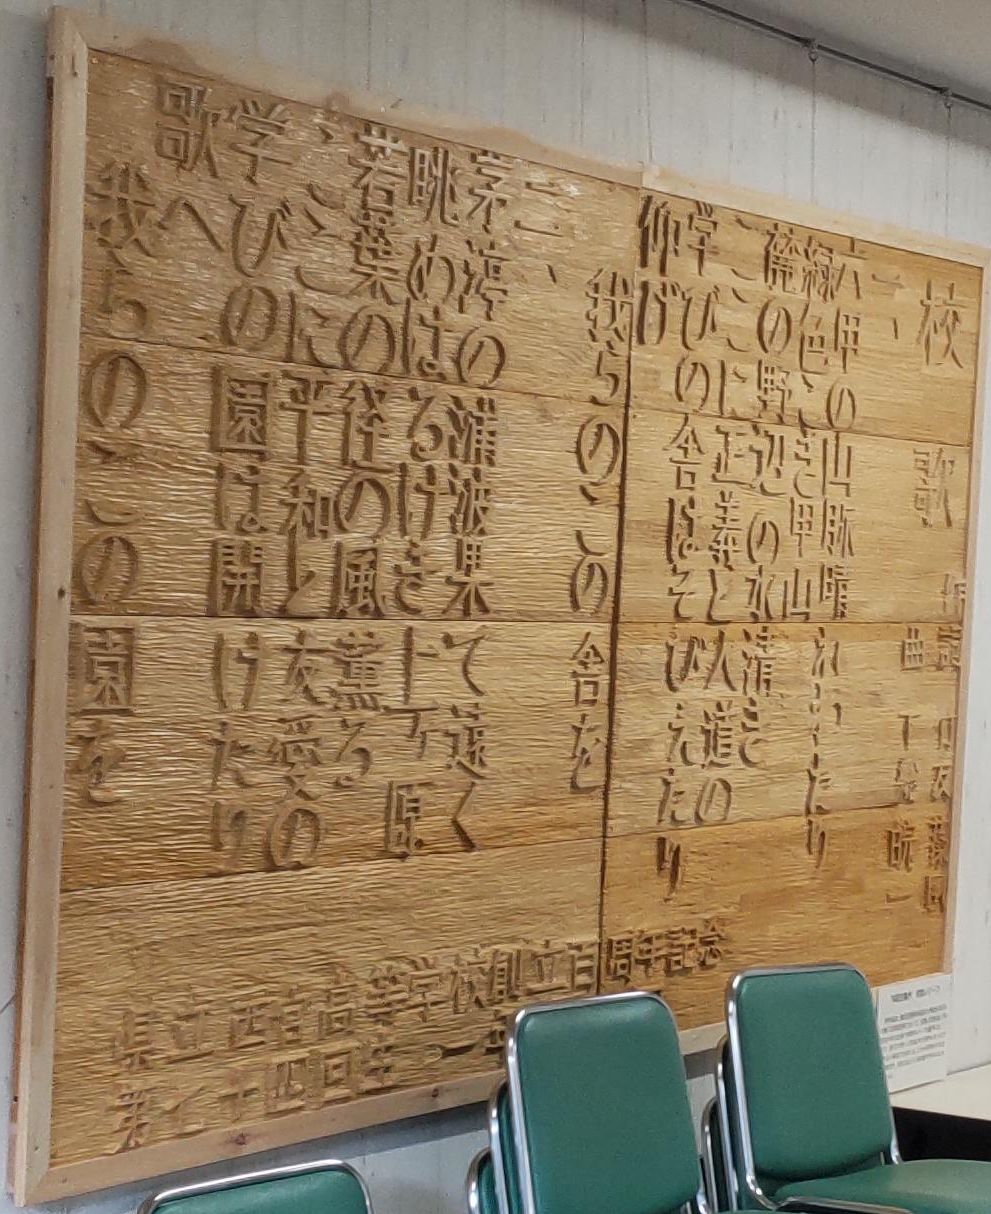 校歌
作詞
作曲 下總皖一
一、
六甲の山脈晴れわたり
緑色こき甲山
麓の野辺の水清き
ここに正義と人道の
学びの舎はそびえたり
仰げ
我らのこの舎を
二、
茅渟の浦波果て遠く
眺めはるけき上ヶ原
若葉の径の風薫る
ここに平和と友愛の
学びの園は開けたり
歌へ
我らのこの園を
県立西宮高等学校創立百周年記念
第七十四回生一年